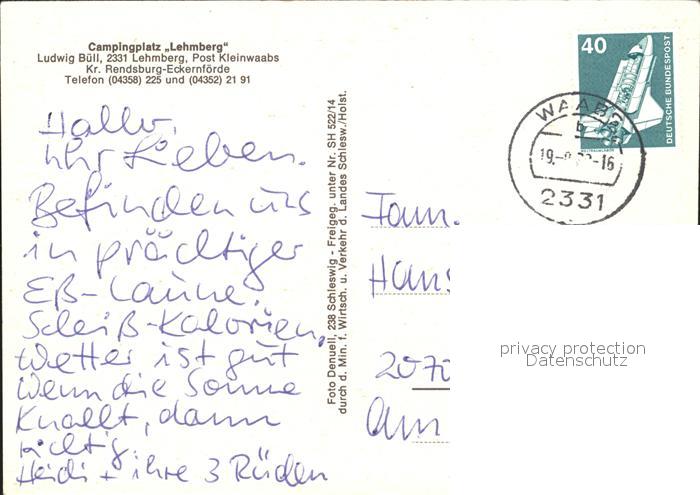 Campingplatz „Lehmberg"
Ludwig Büll, 2331 Lehmberg, Post Kleinwaabs
Kr. Rendsburg-Eckernförde
Telefon (04358) 225 und (04352) 21 91
Hallo,
Ihr Lieben.
Befinden uns
in prächtiger
Eß-Laune.
Scheiß-Kalorien,
Wetter ist gut
Wenn die Sonne
Knallt, dann
richtig.
Heidi + ihre 3 Rüden
Foto Denuell, 238 Schleswig - Freigeg. unter Nr. SH 522/14
durch d. Min. f. Wirtsch. u. Verkehr d. Landes Schlesw./Holst.
40
DEUTSCHE BUNDESPOST
WAABS
b
2331
Fam.
Hans
2070
privacy protection
Datenschutz